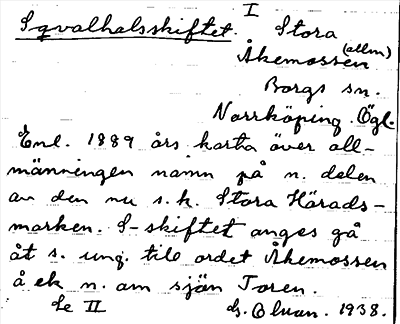 I
Sqvalhalsskiftet. Stora
Åkemossen (allm)
Borgs sn.
Norrköping. Ögl.
Enl. 1889 års karta över all-
männingen namn på n. delen
av den nu s.k. Stora Härads-
marken. S-skiftet anges gå
åt s. ung. till ordet Åkemossen
å ek n. om sjön Toren.
Se II G. 1938.